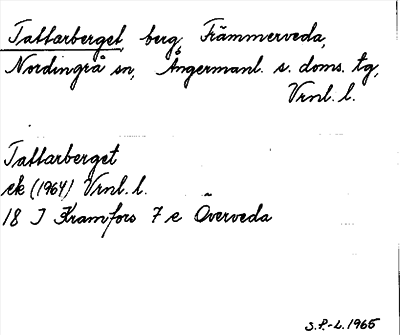 Tattarberget, berg, Främmerveda,
Nordingrå sn, Ångermanl. s. doms. tg,
Vrnl. l.
Tattarberget
ek (1964) Vrnl. l.
18 J Kramfors 7 e Överveda
S.P.-L. 1965